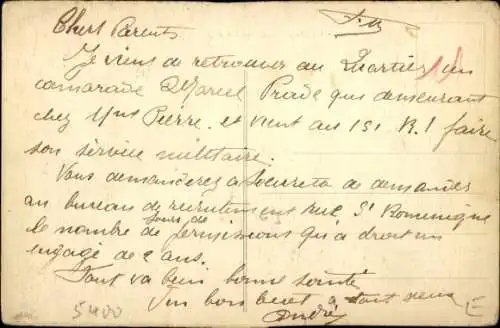 F.M
Chers Parents
Je viens de retrouver au Quartier un
camarade Marcel Prade qui demeurant
chez Mme Pierre. et vient au 151 R.I faire
son service militaire.
Vous demanderez a de demander
au bureau de recrutement rue St Romenigue
le nombre de jours de permissions qu'a droit un
engagé de 2 ans.
Tout va bien bonne santé
Un bon à tout deux
André
5400